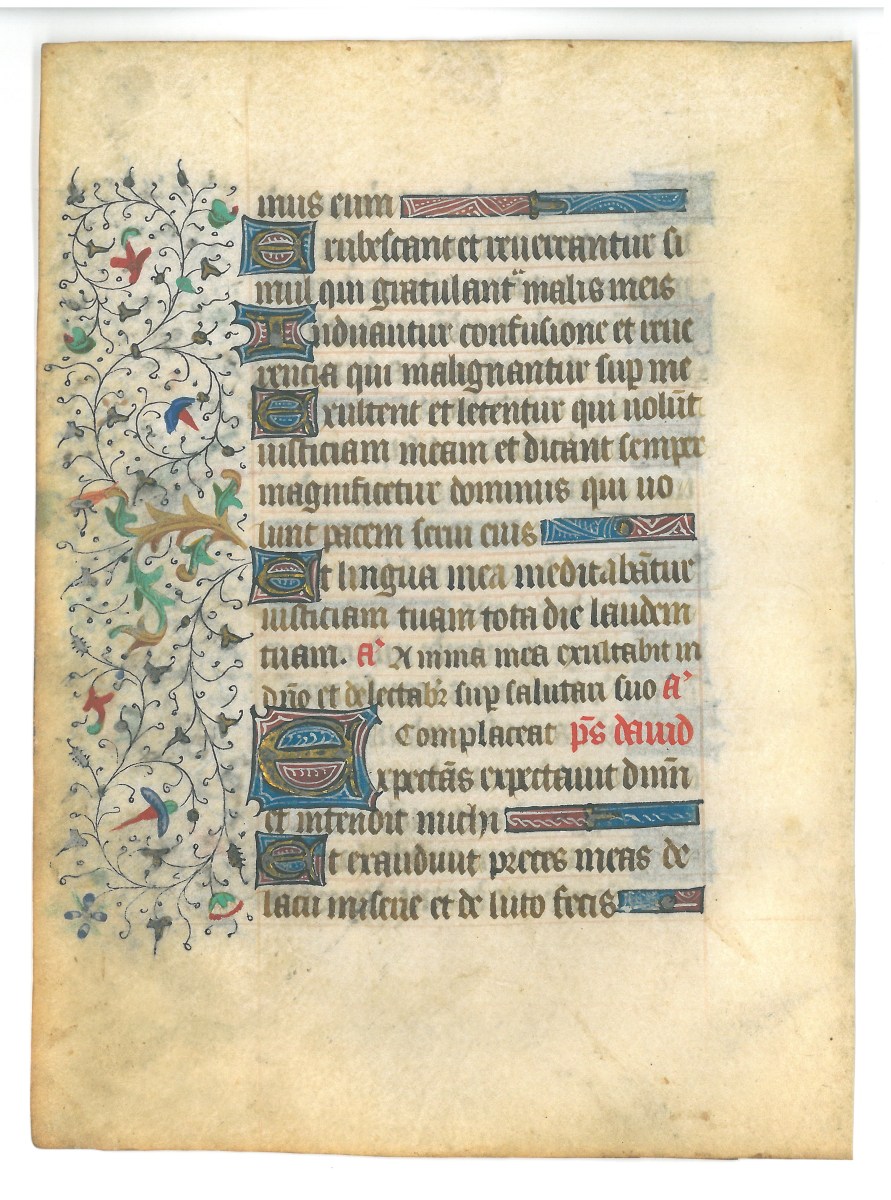 mus eum
Erubescant et reuereantur si
mul qui gratulant᷑ malis meis
Induantur confusione et reue
rencia qui malignantur sup me
Exultent et letentur qui uolūt
iusticiam meam et dicant semper
magnificetur dominus qui uo
lunt pacem serui eius
Et lingua mea meditabātur
iusticiam tuam tota die laudem
tuam. A᷒ Anima mea exultabit in
dn̄o et delectabr̄ sup salutari suo A᷒
Complaceat p̄s dauid
Expectās expectaui dn̄m
et intendit michi
Et exaudiuit preces meas de
lacu miserie et de luto fecis